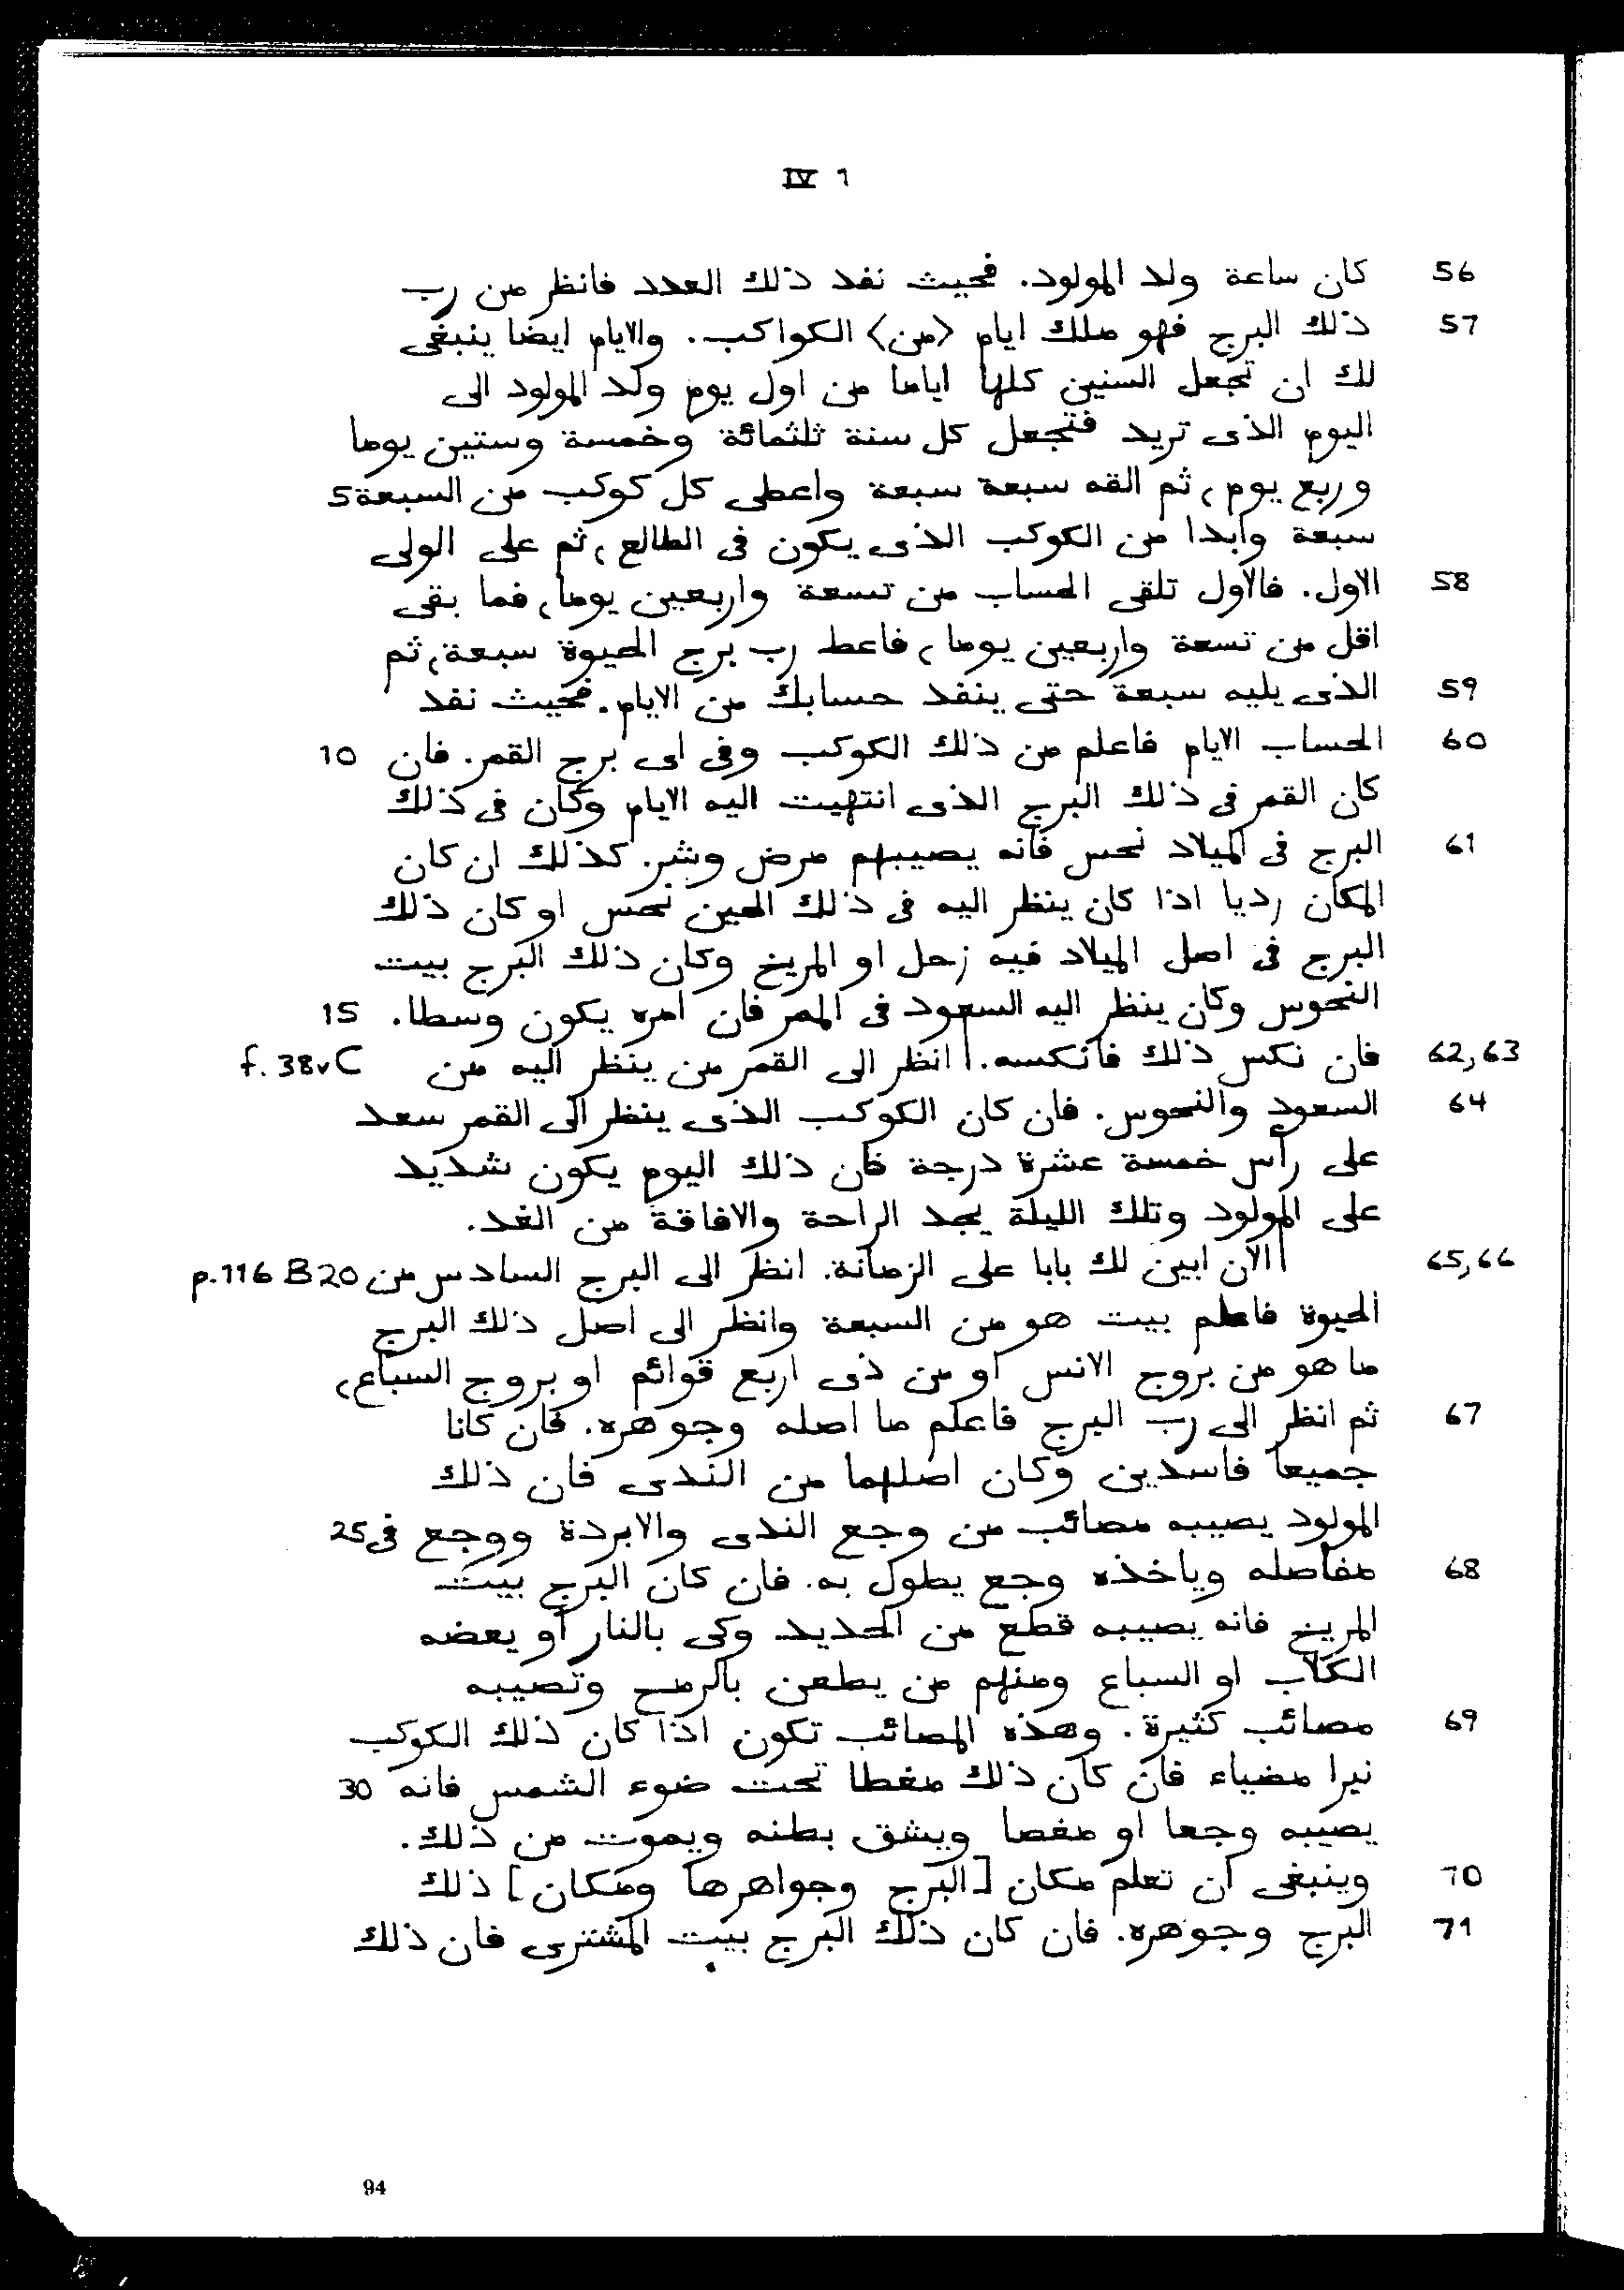 IV 1
56 كان ساعة ولد المولود. فحيث نفد ذلك العدد فانظر من رب
57 ذلك البرج فهو ملك ايام <من> الكواكب. والايام ايضا ينبغى
لك ان تجعل السنين كلها اياما من اول يوم ولد المولود الى
اليوم الذى تريد فتجعل كل سنة ثلثمائة وخمسة وستين يوما
وربع يوم، ثم القه سبعة سبعة واعطى كل كوكب من السبعة 5
سبعة وابدا من الكوكب الذى يكون فى الطالع، ثم على الولى
58 الاول. فالاول تلقى الحساب من تسعة واربعين يوما، فما بقى
اقل من تسعة واربعين يوما، فاعط رب برج الحيوة سبعة، ثم
59 الذى يليه سبعة حتى ينفد حسابك من الايام. فحيث نفد
60 الحساب الايام فاعلم من ذلك الكوكب وفى اى برج القمر. فان 10
كان القمر فى ذلك البرج الذى انتهيت اليه الايام وكان فى ذلك
61 البرج فى الميلاد نحس فانه يصيبهم مرض وشر. كذلك ان كان
المكان رديا اذا كان ينظر اليه فى ذلك الحين نحس او كان ذلك
البرج فى اصل الميلاد فيه زحل او المريخ وكان ذلك البرج بيت
النحوس وكان ينظر اليه السعود فى الممر فان امره يكون وسطا. 15
62,63 فان نكس ذلك فانكسه. | انظر الى القمر من ينظر اليه من f. 38v C
64 السعود والنحوس. فان كان الكوكب الذى ينظر الى القمر سعد
على رأس خمسة عشرة درجة فان ذلك اليوم يكون شديد
على المولود وتلك الليلة يجد الراحة والافاقة من الغد.
65,66 | الآن ابين لك بابا على الزمانة. انظر الى البرج السادس من p.116 B 20
الحيوة فاعلم بيت هو من السبعة وانظر الى اصل ذلك البرج
ما هو من بروج الانس او من ذى اربع قوائم او بروج السباع،
67 ثم انظر الى رب البرج فاعلم ما اصله وجوهره. فان كانا
جميعا فاسدين وكان اصلهما من الندى فان ذلك
المولود يصيبه مصائب من وجع الندى والابردة ووجع فى 25
68 مفاصله وياخذه وجع يطول به. فان كان البرج بيت
المريخ فانه يصيبه قطع من الحديد وكى بالنار أو يعضه
الكلاب او السباع ومنهم من يطعن بالرمح وتصيبه
69 مصائب كثيرة. وهذه المصائب تكون اذا كان ذلك الكوكب
نيرا مضياء فان كان ذلك مغطا تحت ضوء الشمس فانه 30
يصيبه وجعا او مغصا ويشق بطنه ويموت من ذلك.
70 وينبغى ان تعلم مكان [البرج وجواهرها ومكان] ذلك
71 البرج وجوهره. فان كان ذلك البرج بيت المشترى فان ذلك
94